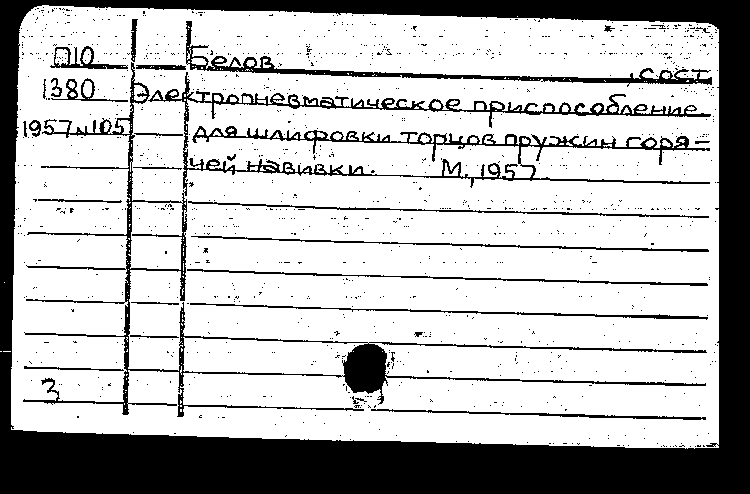 П10 Белов , сост.
1380 Электропневматическое приспособление
1957 N105 для шлифовки торцов пружин горя=
чей навивки. М., 1957
3